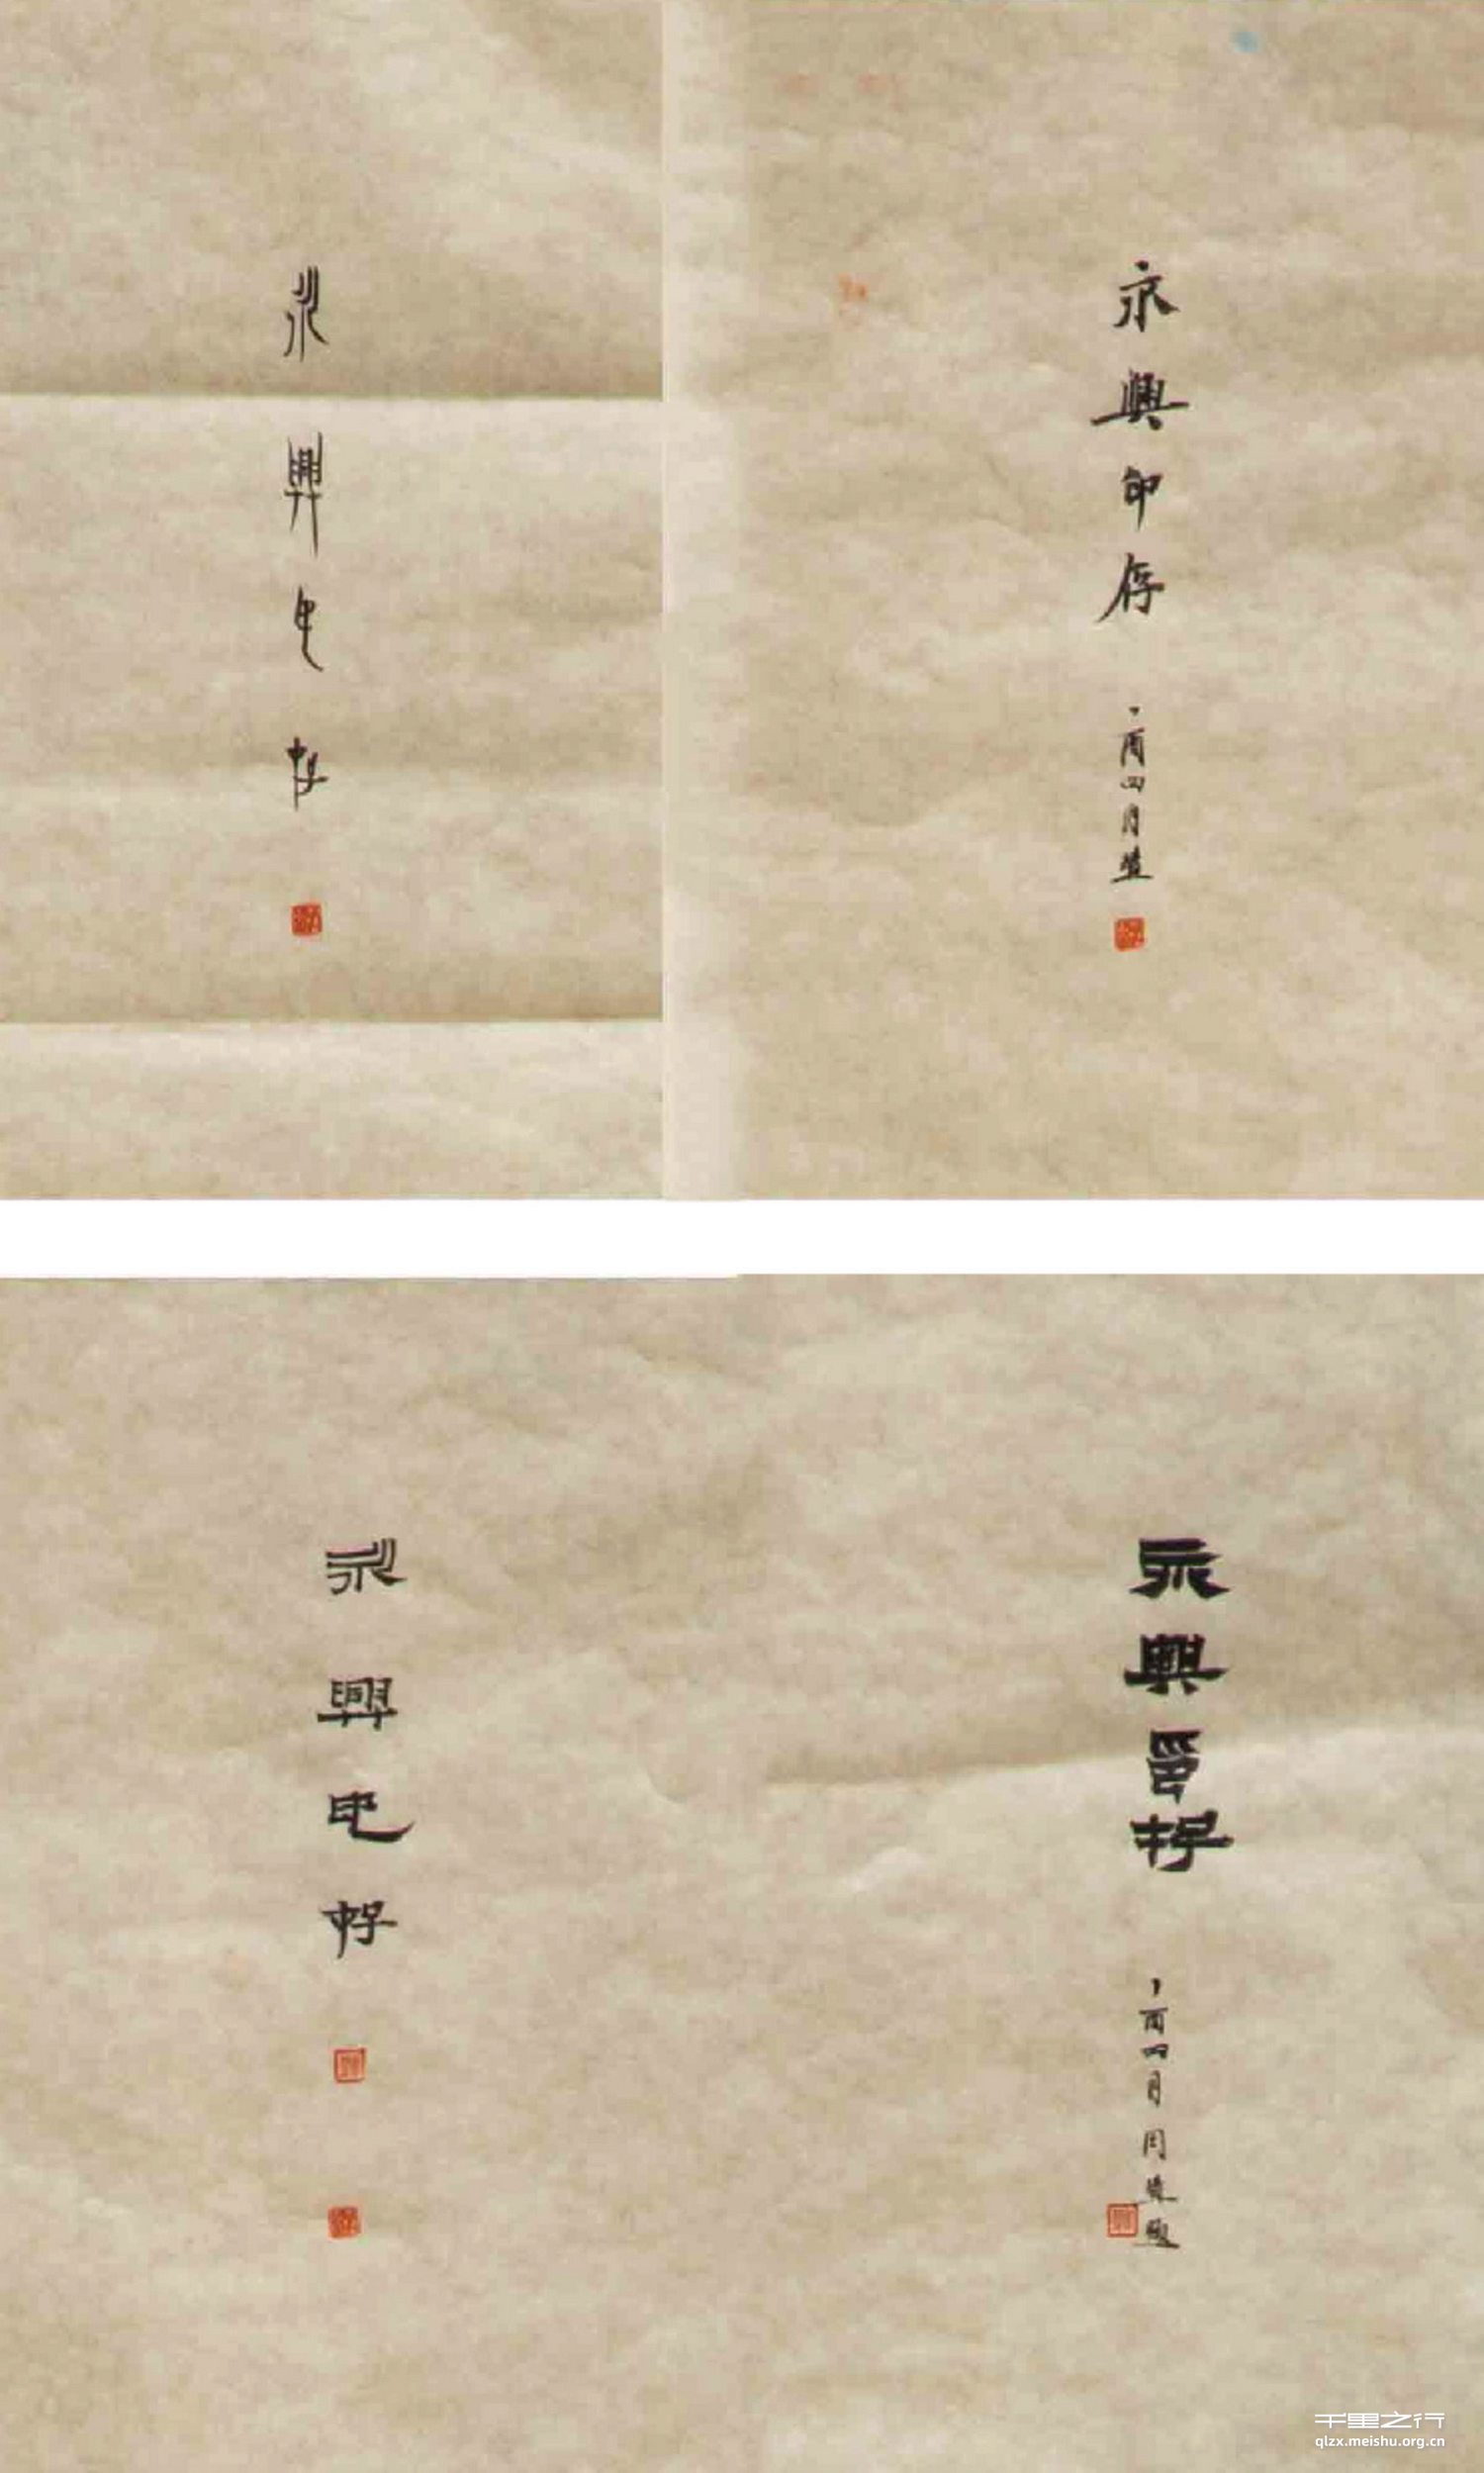 永興印存
永興印存
丁酉四月
永興印存
永興印存
丁酉四月周題
千里之行
qlzx.meishu.org.cn